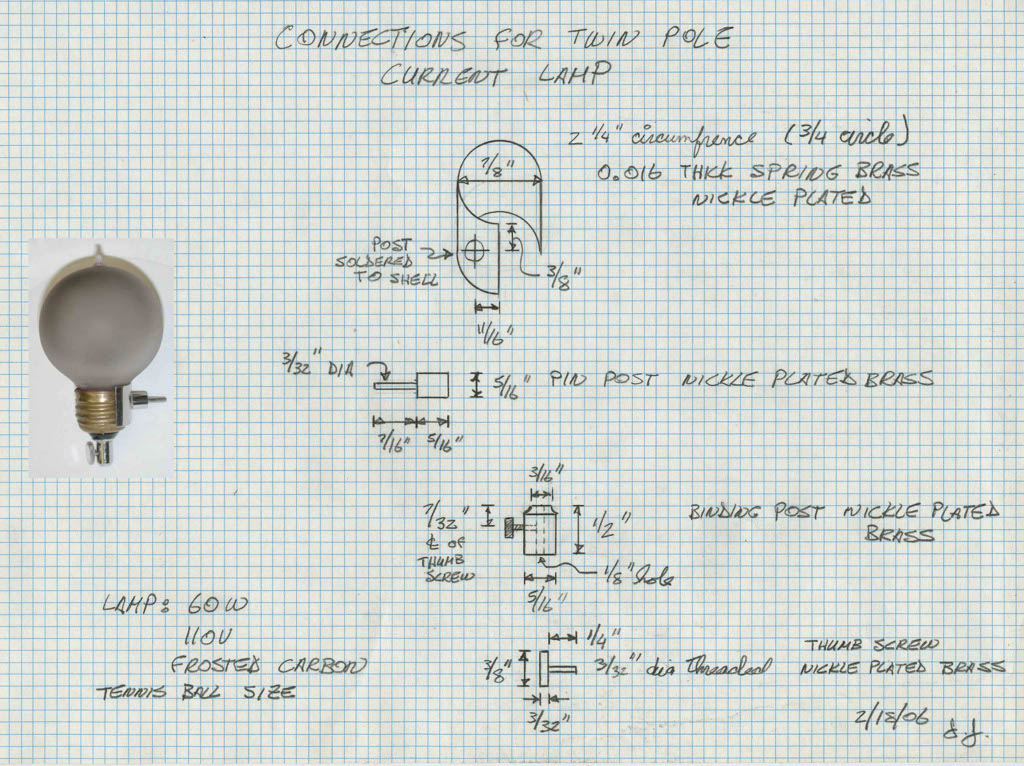 CONNECTIONS FOR TWIN POLE
CURRENT LAMP
2 1/4" circumfrence (3/4 circle)
0.016 THICK SPRING BRASS
NICKLE PLATED
7/8"
POST
SOLDERED
TO SHELL
3/8"
11/16"
3/32" DIA
5/16" PIN POST NICKLE PLATED BRASS
7/16" 5/16"
3/16"
7/32"
℄ OF
THUMB
SCREW
1/2"
BINDING POST NICKLE PLATED
BRASS
1/8" hole
5/16"
LAMP: 60W
110V
FROSTED CARBON
TENNIS BALL SIZE
1/4"
3/8"
3/32" dia Threaded
THUMB SCREW
NICKLE PLATED BRASS
3/32"
2/18/06